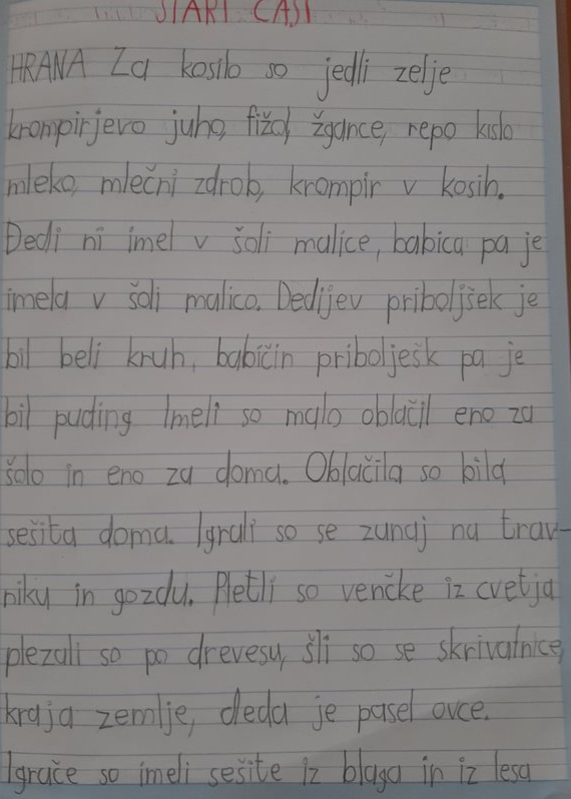 STARI ČASI
HRANA Za kosilo so jedli zelje
krompirjevo juho, fižol, žgance, repo kislo
mleko, mlečni zdrob, krompir v kosih.
Dedi ni imel v šoli malice, babica pa je
imela v šoli malico. Dedijev priboljšek je
bil beli kruh, babičin pribolješk pa je
bil puding Imeli so malo oblačil eno za
šolo in eno za doma. Oblačila so bila
sešita doma. Igrali so se zunaj na trav-
niku in gozdu. Pletli so venčke iz cvetja
plezali so po drevesu, šli so se skrivalnice,
kraja zemlje, deda je pasel ovce.
Igrače so imeli sešite iz blaga in iz lesa